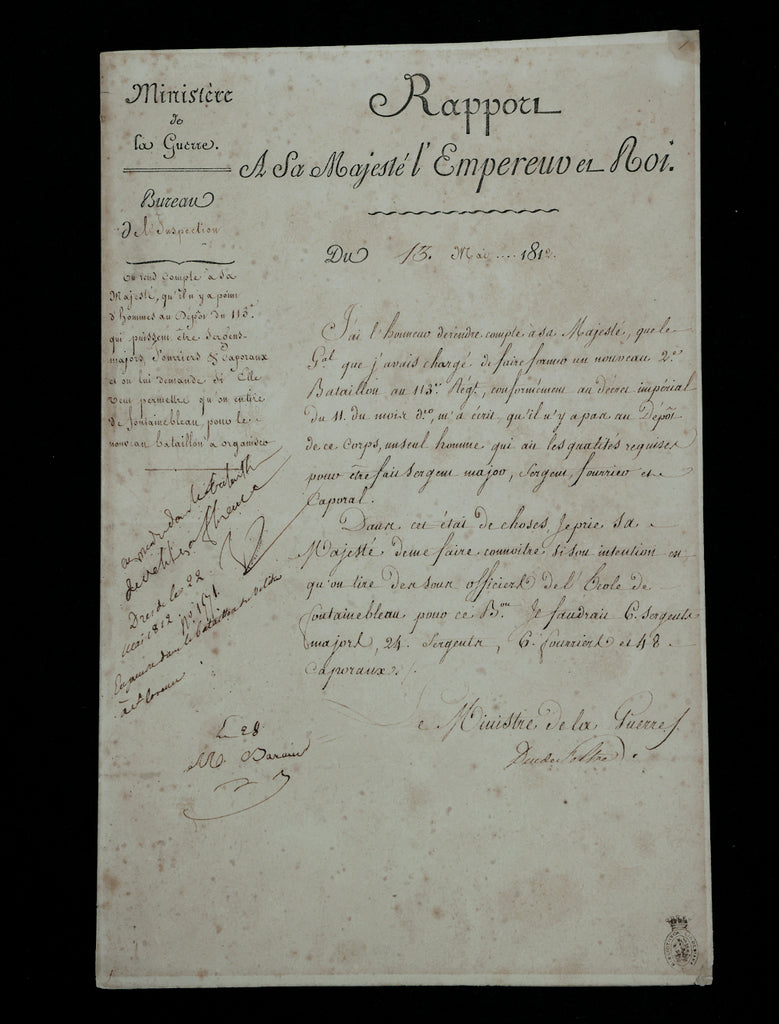 Ministère
de
la Guerre.
Bureau
de l'Inspection
On rend compte à Sa
Majesté, qu'il n'y a point
d'hommes au Dépôt du 113.e
qui puissent être Sergens-
majors, Fourriers & Caporaux
et on lui demande si Elle
veut permettre qu'on en tire
de fontainebleau pour le
nouveau bataillon à organiser
Rapport
A Sa Majesté l'Empereur et Roi.
Du 13. Mai .... 1812.
J'ai l'honneur de rendre compte à sa Majesté, que le
G.al que j'avais chargé de faire former un nouveau 2.e
Bataillon au 113.e Régt, conformément au décret impérial
du 11. du mois d.er, m'a écrit qu'il n'y a pas au Dépôt
de ce Corps, un seul homme qui ait les qualités requises
pour être fait Sergent major, Sergent, fourrier et
Caporal.
Dans cet état de choses, Je prie sa
Majesté de me faire connoître, si son intention est
qu'on tire des sous officiers de l'Ecole de
fontainebleau pour ce B.on Je faudrait 6. Sergents
majors, 24. Sergents, 6. fourriers et 48
Caporaux./.
Le Ministre de la Guerre
Duc de Feltre
Dresde le 22
Mai 1812.
N° 1671.
Le 28